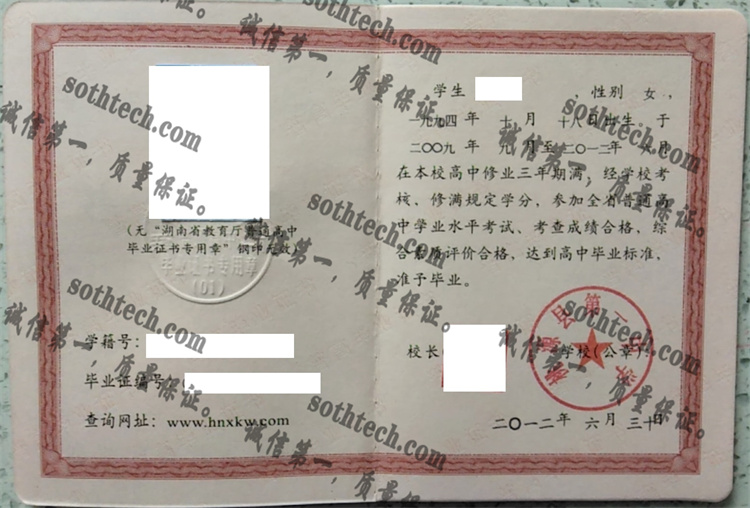 (无“湖南省教育厅普通高中
毕业证书专用章”钢印无效)
毕业证书专用章
(01)
学籍号:
毕业证编号:
查询网址: www.hnxkw.com
学生 , 性别 女,
一九九四年 十月 十八日出生。于
二〇〇九年 九月至二〇一二年 六月
在本校高中修业三年期满, 经学校考
核, 修满规定学分, 参加全省普通高
中学业水平考试、考查成绩合格, 综
合素质评价合格, 达到高中毕业标准,
准予毕业。
校长( 学校(公章)
县第一
二〇一二年 六月 三十日
sothtech.com
诚信第一,质量保证。
sothtech.com
诚信第一,质量保证。
sothtech.com
诚信第一,质量保证。
sothtech.com
诚信第一,质量保证。
sothtech.com
诚信第一,质量保证。
sothtech.com
诚信第一,质量保证。
sothtech.com
诚信第一,质量保证。
sothtech.com